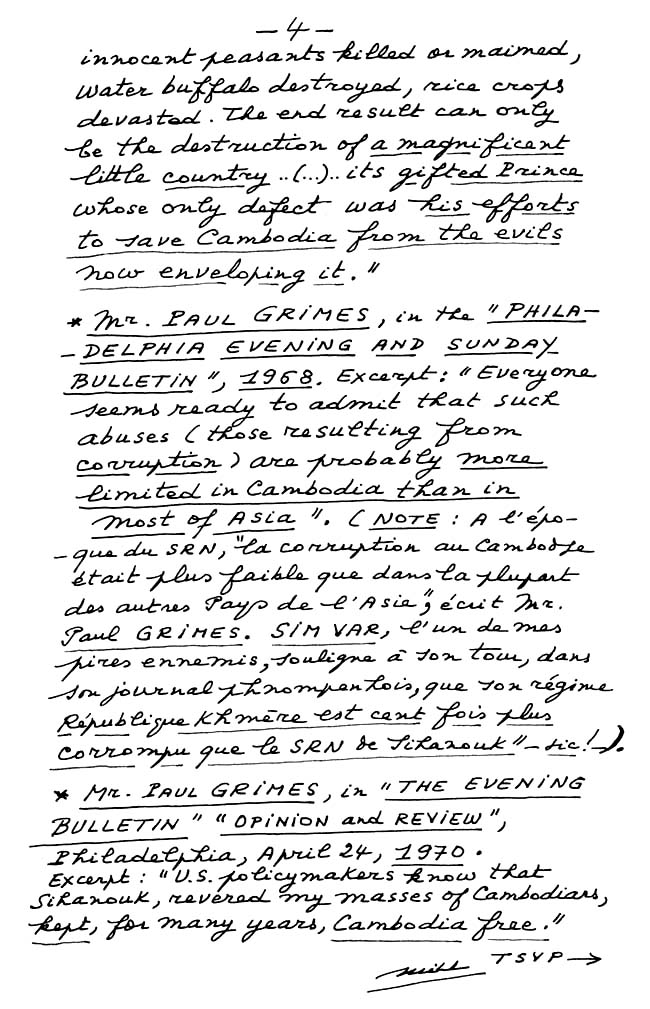 -4-
innocent peasants killed or maimed,
water buffalo destroyed, rice crops
devasted. The end result can only
be the destruction of a magnificent
little country ..(...).. its gifted Prince
whose only defect was his efforts
to save Cambodia from the evils
now enveloping it."
* Mr. PAUL GRIMES, in the "PHILA-
-DELPHIA EVENING AND SUNDAY
BULLETIN", 1968. Excerpt: "Everyone
seems ready to admit that such
abuses (those resulting from
corruption) are probably more
limited in Cambodia than in
most of ASIA". (NOTE: A l'épo-
-que du SRN, "la corruption au Cambodge
était plus faible que dans la plupart
des autres Pays de l'Asie", écrit Mr.
Paul GRIMES. SIM VAR, l'un de mes
pires ennemis, souligne à son tour, dans
son journal phnompenhois, que son régime
République Khmère est cent fois plus
corrompu que le SRN de Sihanouk" - sic! -).
* Mr. PAUL GRIMES, in "THE EVENING
BULLETIN" "OPINION and REVIEW",
Philadelphia, April 24, 1970.
Excerpt: "U.S. policymakers know that
Sihanouk, revered my masses of Cambodians,
kept, for many years, Cambodia free."
TSVP →